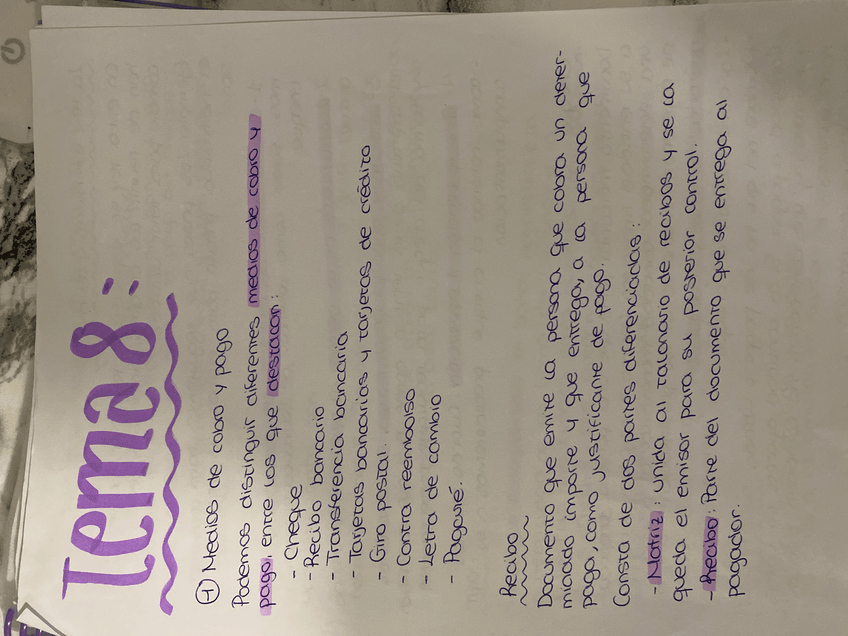 Tema 8:
① Medios de cobro y pago
Podemos distinguir diferentes medios de cobro y
pago, entre los que destacan:
- Cheque
- Recibo bancario
- Transferencia bancaria
- Tarjetas bancarias y tarjetas de crédito
- Giro postal.
- Contra reembolso
- Letra de cambio
- Pagaré.
Recibo
Documento que emite la persona que cobra un deter-
minado importe y que entrega, a la persona que
paga, como justificante de pago.
Consta de dos partes diferenciadas:
- Matriz: unida al talonario de recibos y se la
queda el emisor para su posterior control.
- Recibo: Parte del documento que se entrega al
pagador.